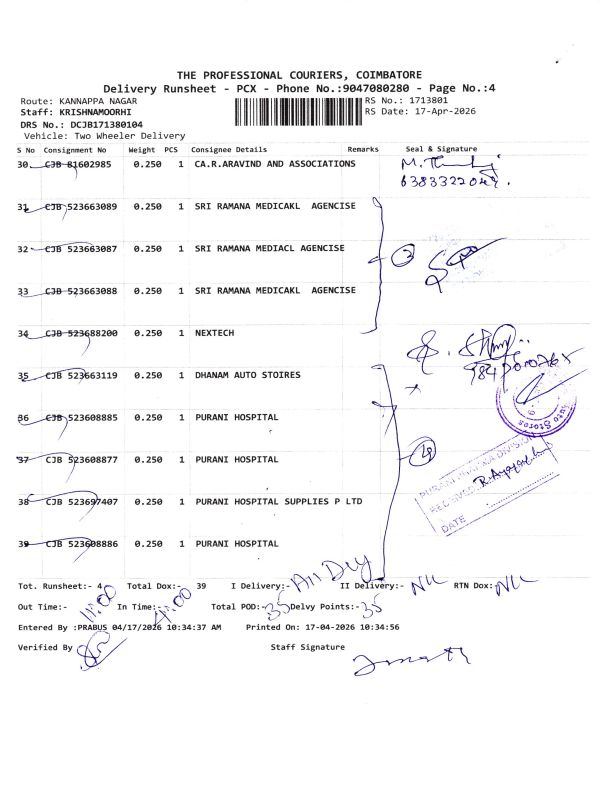 THE PROFESSIONAL COURIERS, COIMBATORE
Delivery Runsheet - PCX - Phone No.:9047080280 - Page No.:4
Route: KANNAPPA NAGAR
RS No.: 1713801
Staff: KRISHNAMOORHI
RS Date: 17-Apr-2026
DRS No.: DCJB171380104
Vehicle: Two Wheeler Delivery
S No Consignment No Weight PCS Consignee Details Remarks Seal & Signature
30 CJB 81602985 0.250 1 CA.R.ARAVIND AND ASSOCIATIONS
31 CJB 523663089 0.250 1 SRI RAMANA MEDICAKL AGENCISE
32 CJB 523663087 0.250 1 SRI RAMANA MEDIACL AGENCISE
3
33 CJB 523663088 0.250 1 SRI RAMANA MEDICAKL AGENCISE
34 CJB 523688200 0.250 1 NEXTECH
35 CJB 523663119 0.250 1 DHANAM AUTO STOIRES
Auto Stores
36 CJB 523608885 0.250 1 PURANI HOSPITAL
37 CJB 523608877 0.250 1 PURANI HOSPITAL
38 CJB 523697407 0.250 1 PURANI HOSPITAL SUPPLIES P LTD
DATE
39 CJB 523608886 0.250 1 PURANI HOSPITAL
Tot. Runsheet:- 4 Total Dox:- 39 I Delivery:- All Dey II Delivery:- Nil RTN Dox:- Nil
Out Time:- 11:00 In Time:- 4:00 Total POD:- 35 Delvy Points:- 35
Entered By :PRABUS 04/17/2026 10:34:37 AM Printed On: 17-04-2026 10:34:56
Verified By
Staff Signature